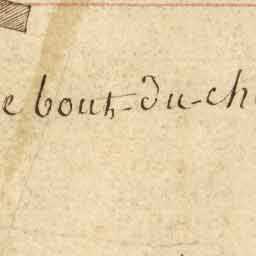 e bout-du-ch